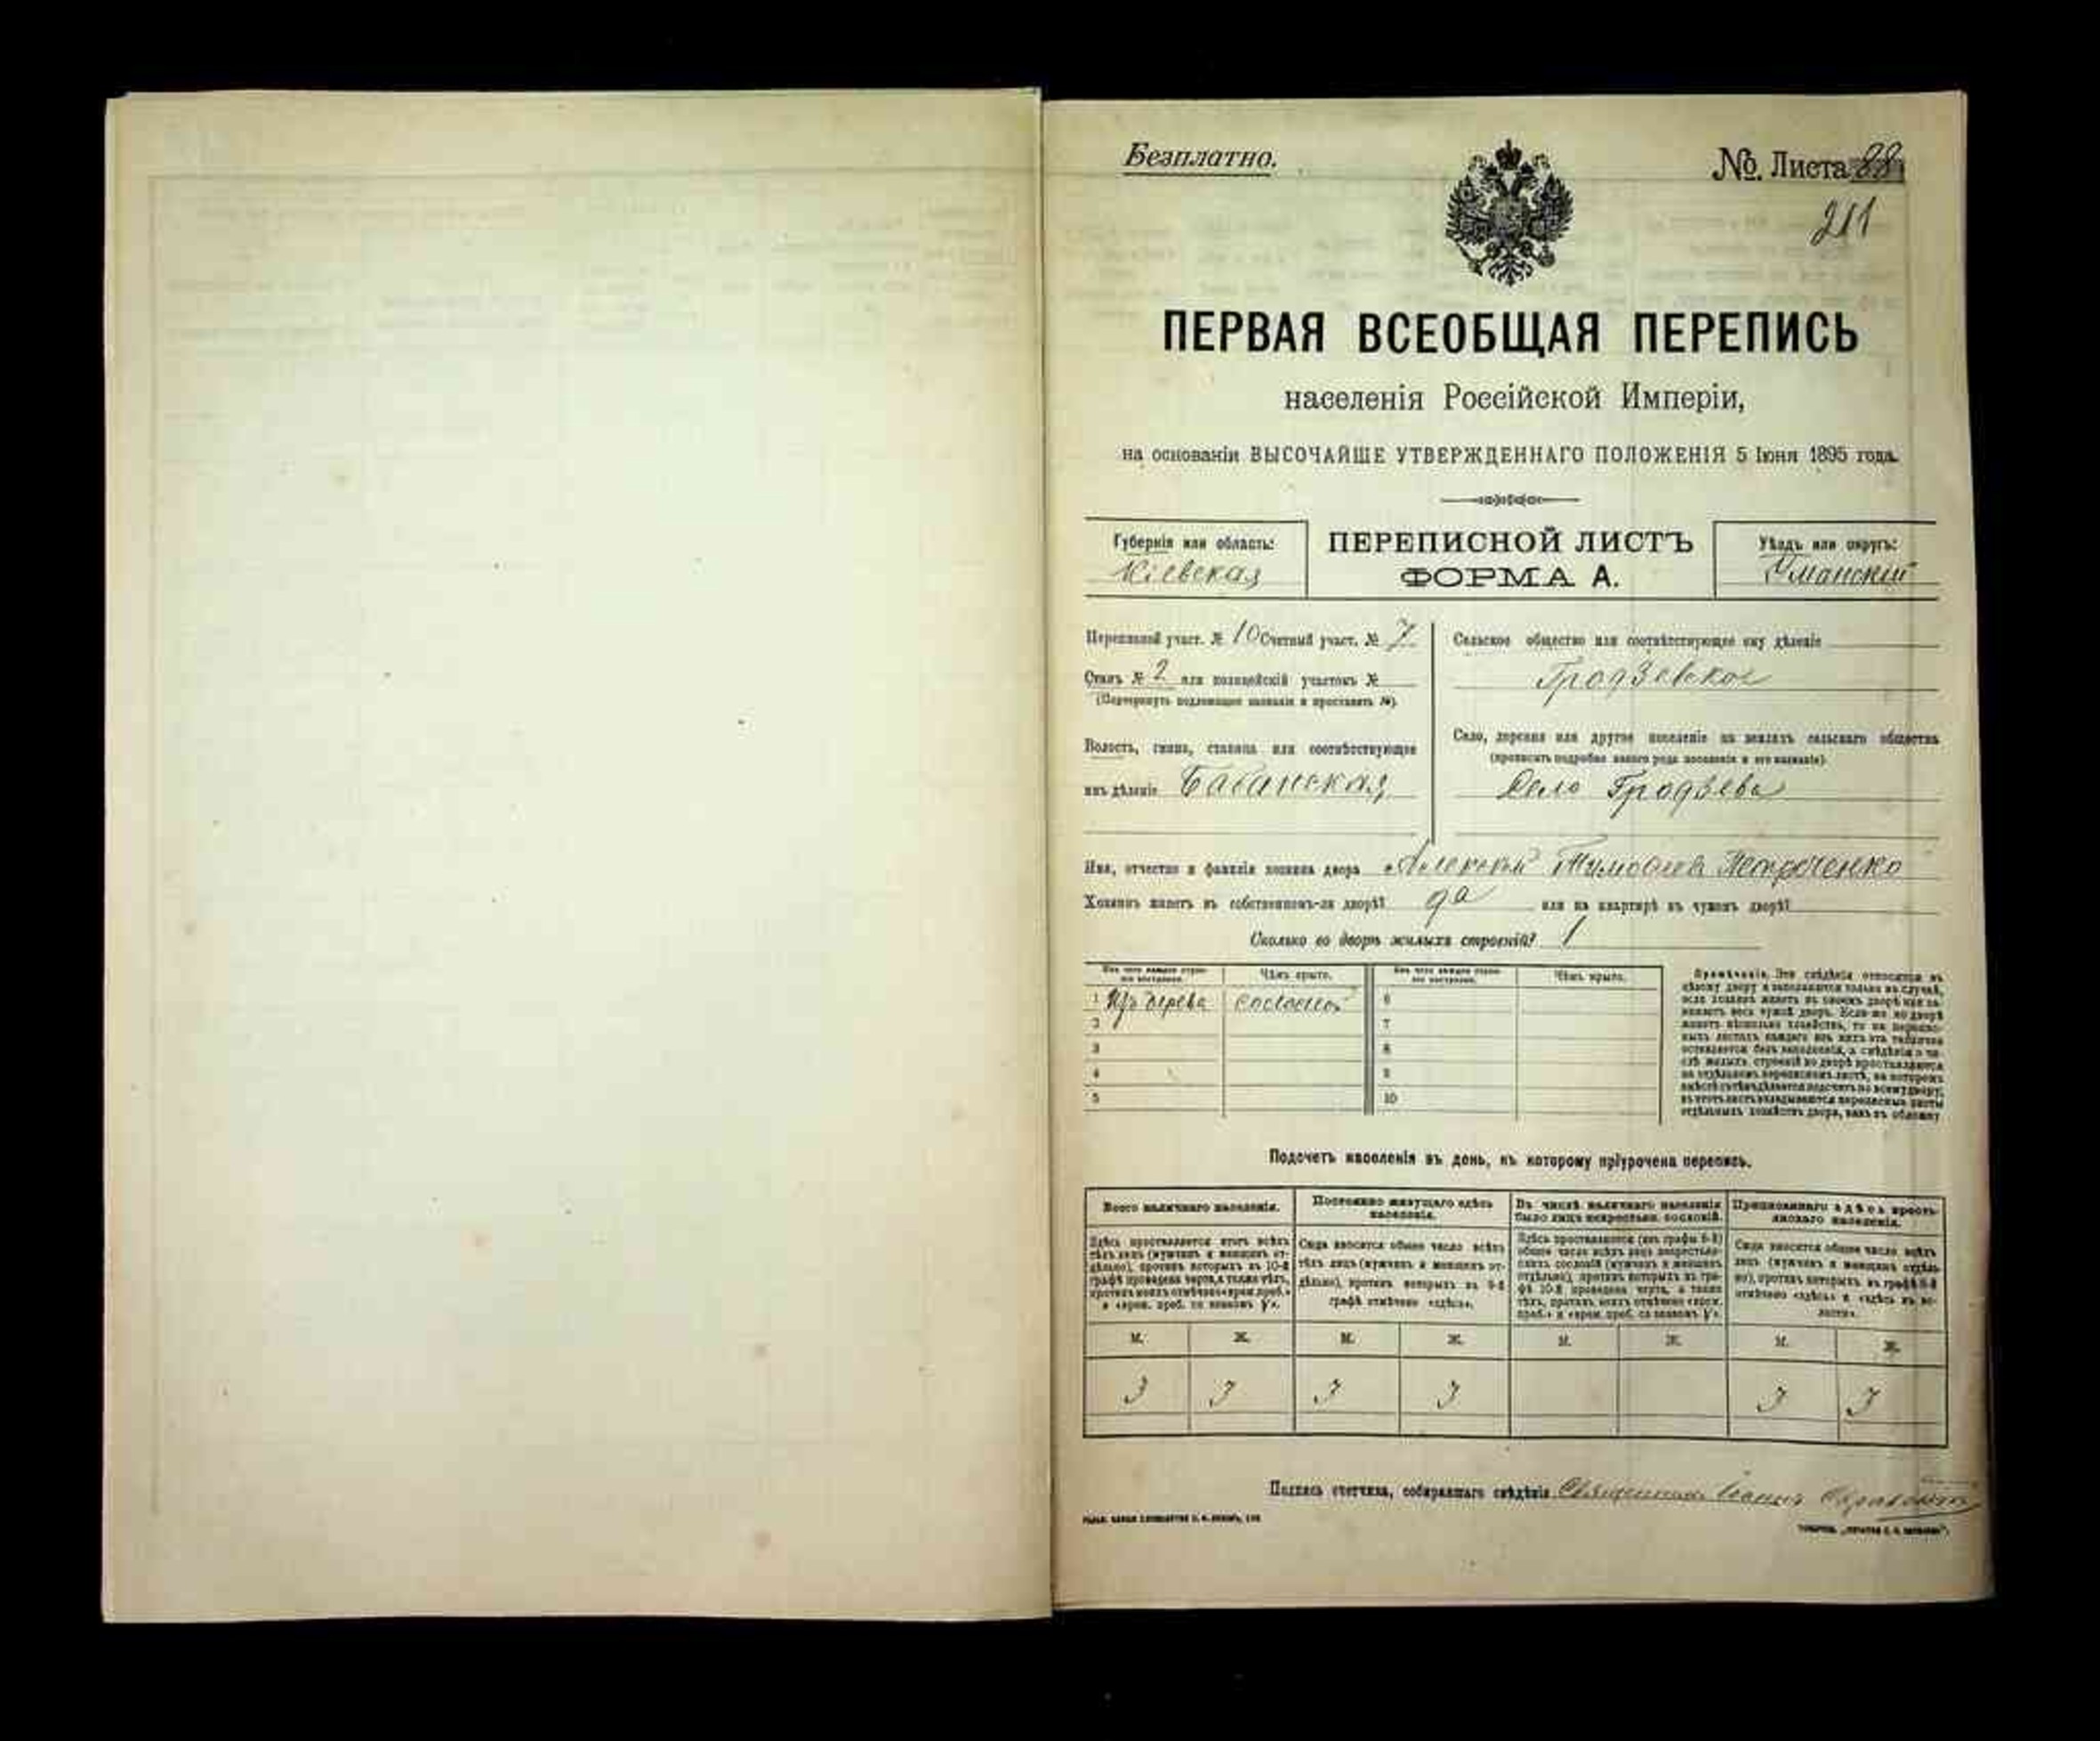 Безплатно.
№ Листа 88
211
ПЕРВАЯ ВСЕОБЩАЯ ПЕРЕПИСЬ
населенія Россійской Имперіи,
на основаніи ВЫСОЧАЙШЕ УТВЕРЖДЕННАГО ПОЛОЖЕНІЯ 5 Іюня 1895 года.
Губернія или область:
Кіевская
ПЕРЕПИСНОЙ ЛИСТЪ
ФОРМА А.
Уѣздъ или округъ:
Уманскій
Переписной участ. № 10 Счетный участ. № 7
Станъ № 2 или полицейскій участокъ №
(Подчеркнуть подлежащее названіе и проставить №).
Волость, гмина, станица или соотвѣтствующее
имъ дѣленіе Бабанская
Сельское общество или соотвѣтствующее ему дѣленіе
Гродзевское
Село, деревня или другое поселеніе на земляхъ сельскаго общества
(прописать подробно какого рода поселеніе и его названіе).
Село Гродзево
Имя, отчество и фамилія хозяина двора Алексѣй Тимофѣев Петроченко
Хозяинъ живетъ въ собственномъ-ли дворѣ? да или на квартирѣ въ чужомъ дворѣ?
Сколько во дворѣ жилыхъ строеній? 1
Изъ чего каждое строеніе построено. Чѣмъ крыто. Изъ чего каждое строеніе построено. Чѣмъ крыто.
1 Изъ дерева соломой 6
2 7
3 8
4 9
5 10
Примѣчаніе. Эти свѣдѣнія относятся къ
цѣлому двору и заполняются только въ случаѣ,
если хозяинъ живетъ въ своемъ дворѣ или за-
нимаетъ весь чужой дворъ. Если-же во дворѣ
живетъ нѣсколько хозяйствъ, то на перепис-
ныхъ листахъ каждаго изъ нихъ эта табличка
оставляется безъ заполненія, а свѣдѣнія о чи-
слѣ жилыхъ строеній во дворѣ проставляются
на отдѣльномъ переписномъ листѣ, на которомъ
вмѣстѣ съ тѣмъ дѣлается подсчетъ по всему двору;
въ этотъ листъ вкладываются переписные листы
отдѣльныхъ хозяйствъ двора, какъ въ обложку
Подсчетъ населенія въ день, къ которому пріурочена перепись.
Всего наличнаго населенія.
Здѣсь проставляется итогъ всѣхъ
тѣхъ лицъ (мужчинъ и женщинъ от-
дѣльно), противъ которыхъ въ 10-й
графѣ проведена черта, а также тѣхъ,
противъ коихъ отмѣчено «врем. преб.»
и «врем. преб. со знакомъ V».
Постоянно живущаго здѣсь
населенія.
Сюда вносится общее число всѣхъ
тѣхъ лицъ (мужчинъ и женщинъ от-
дѣльно), противъ которыхъ въ 9-й
графѣ отмѣчено «здѣсь».
Въ числѣ наличнаго населенія
было лицъ некрестьян. сословій.
Здѣсь проставляется (изъ графы 6-й)
общее число всѣхъ лицъ некрестьян-
скихъ сословій (мужчинъ и женщинъ
отдѣльно), противъ которыхъ въ гра-
фѣ 10-й проведена черта, а также
тѣхъ, противъ коихъ отмѣчено «врем.
преб.» и «врем. преб. со знакомъ V».
Приписаннаго здѣсь кресть-
янскаго населенія.
Сюда вносится общее число всѣхъ
лицъ (мужчинъ и женщинъ отдѣль-
но), противъ которыхъ въ графѣ 8-й
отмѣчено «здѣсь» и «здѣсь въ во-
лости».
М. Ж. М. Ж. М. Ж. М. Ж.
3 3 3 3 3 3
Подпись счетчика, собиравшаго свѣдѣнія Священникъ Іоаннъ